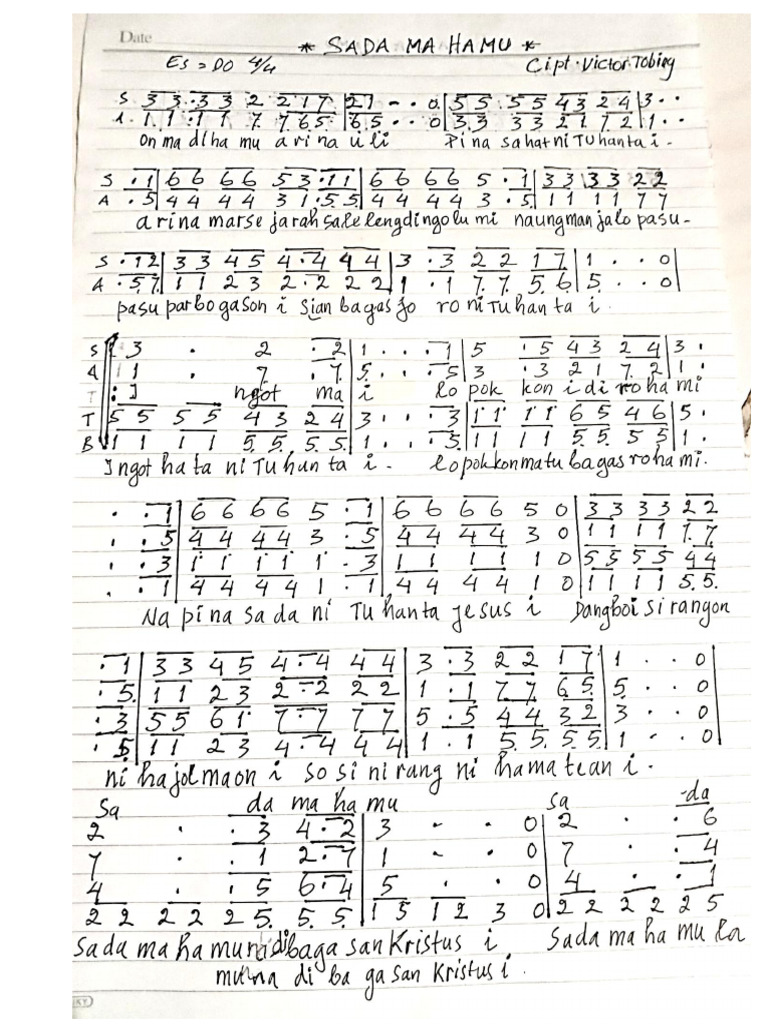 Date
* SADA MA HAMU *
Es = DO 4/4 Cipt. Victor Tobing
S 3 3 . 3 3 2 2 1 7 | 2 1 - - 0 | 5 5 5 5 4 3 2 4 | 3 . .
A. 1 1 . 1 1 7 7 6 5 | 6 5 . . 0 | 3 3 3 3 2 1 7 2 | 1 . .
On ma diha mu ari na uli Pina sahat ni Tuhanta i -
S . 1 | 6 6 6 6 5 3 . 1 1 | 6 6 6 6 5 . 1 | 3 3 3 3 2 2
A . 5 | 4 4 4 4 3 1 . 5 5 | 4 4 4 4 3 . 5 | 1 1 1 1 7 7
arina marse jarah sale lengdingolu mi naungman jalo pasu-
S . 1 2 | 3 3 4 5 4 . 4 4 4 | 3 . 3 2 2 1 7 | 1 . . 0
A . 5 7 | 1 1 2 3 2 . 2 2 2 | 1 . 1 7 7 5 6 | 5 . . 0
pasu parbogason i sian bagas jo ro ni Tuhan ta i .
S 3 . 2 . 2 | 1 . . . 1 | 5 . 5 4 3 2 4 | 3 .
A 1 . 7 . 7 | 5 . . . 5 | 3 . 3 2 1 7 2 | 1 .
T : I ngot ma i lo pok kon i di ro ha mi
T 5 5 5 5 4 3 2 4 | 3 . . . 3 | 1 1 1 1 6 5 4 6 | 5 .
B 1 1 1 1 5 5 5 5 | 1 . . . 5 | 1 1 1 1 5 5 5 5 | 1 .
Ingot hata ni Tuhan ta i - lopokkonmatu bagas roha mi.
. . 1 | 6 6 6 6 5 . 1 | 6 6 6 6 5 0 | 3 3 3 3 2 2
. . 5 | 4 4 4 4 3 . 5 | 4 4 4 4 3 0 | 1 1 1 1 7 7
. . 3 | 1 1 1 1 1 . 3 | 1 1 1 1 1 0 | 5 5 5 5 4 4
. . 1 | 4 4 4 4 1 . 1 | 4 4 4 4 1 0 | 1 1 1 1 5 5
Na pina sada ni Tuhanta Jesus i Dangboi sirangon
. 1 | 3 3 4 5 4 . 4 4 4 | 3 . 3 2 2 1 7 | 1 . . 0
. 5 | 1 1 2 3 2 . 2 2 2 | 1 . 1 7 7 6 5 | 5 . . 0
. 3 | 5 5 6 1 7 . 7 7 7 | 5 . 5 4 4 3 2 | 3 . . 0
. 5 | 1 1 2 3 4 . 4 4 4 | 1 . 1 5 5 5 5 | 1 - . 0
ni hajolmaon i so si nirang ni hamatean i .
Sa da ma ha mu Sa -da
2 . . 3 4 . 2 | 3 - - 0 | 2 . . 6
7 . . 1 2 . 7 | 1 - . 0 | 7 . . 4
4 . . 5 6 . 4 | 5 . . 0 | 4 . . 1
2 2 2 2 2 5 5 5 | 1 5 1 2 3 0 | 2 2 2 2 2 5
Sada ma hamuna di baga san Kristus i Sada ma ha mu la
muna di ba ga san Kristus i .
KY